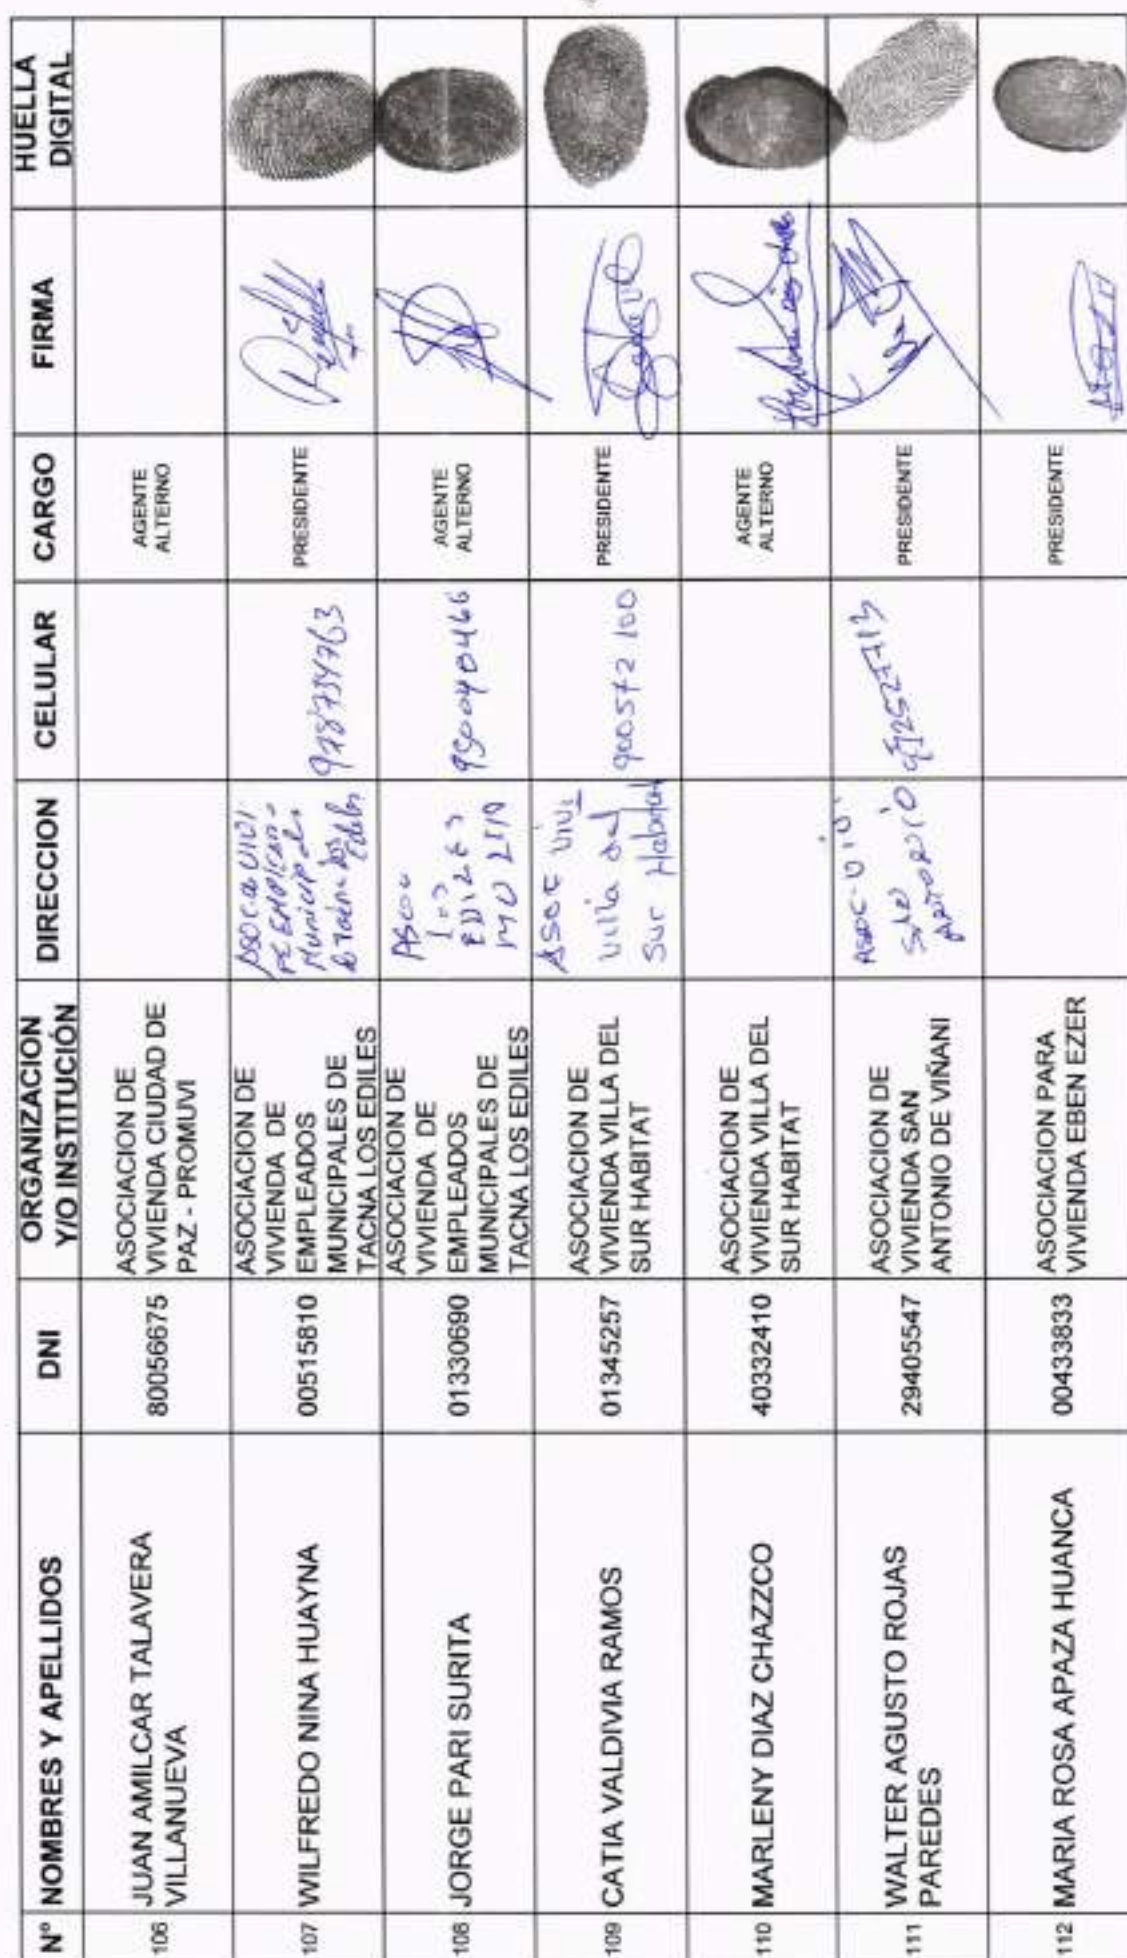 Nº NOMBRES Y APELLIDOS DNI ORGANIZACION Y/O INSTITUCIÓN DIRECCION CELULAR CARGO FIRMA HUELLA DIGITAL
106 JUAN AMILCAR TALAVERA
VILLANUEVA
80056675
ASOCIACION DE
VIVIENDA CIUDAD DE
PAZ - PROMUVI
AGENTE
ALTERNO
107 WILFREDO NINA HUAYNA
00515810
ASOCIACION DE
VIVIENDA DE
EMPLEADOS
MUNICIPALES DE
TACNA LOS EDILES
Municipales
PRESIDENTE
108 JORGE PARI SURITA
01330690
ASOCIACION DE
VIVIENDA DE
EMPLEADOS
MUNICIPALES DE
TACNA LOS EDILES
AGENTE
ALTERNO
109 CATIA VALDIVIA RAMOS
01345257
ASOCIACION DE
VIVIENDA VILLA DEL
SUR HABITAT
Asoc Vivi
Villa del
Sur Habitat
900572100
PRESIDENTE
110 MARLENY DIAZ CHAZZCO
40332410
ASOCIACION DE
VIVIENDA VILLA DEL
SUR HABITAT
AGENTE
ALTERNO
111 WALTER AGUSTO ROJAS
PAREDES
29405547
ASOCIACION DE
VIVIENDA SAN
ANTONIO DE VIÑANI
PRESIDENTE
112 MARIA ROSA APAZA HUANCA
00433833
ASOCIACION PARA
VIVIENDA EBEN EZER
PRESIDENTE